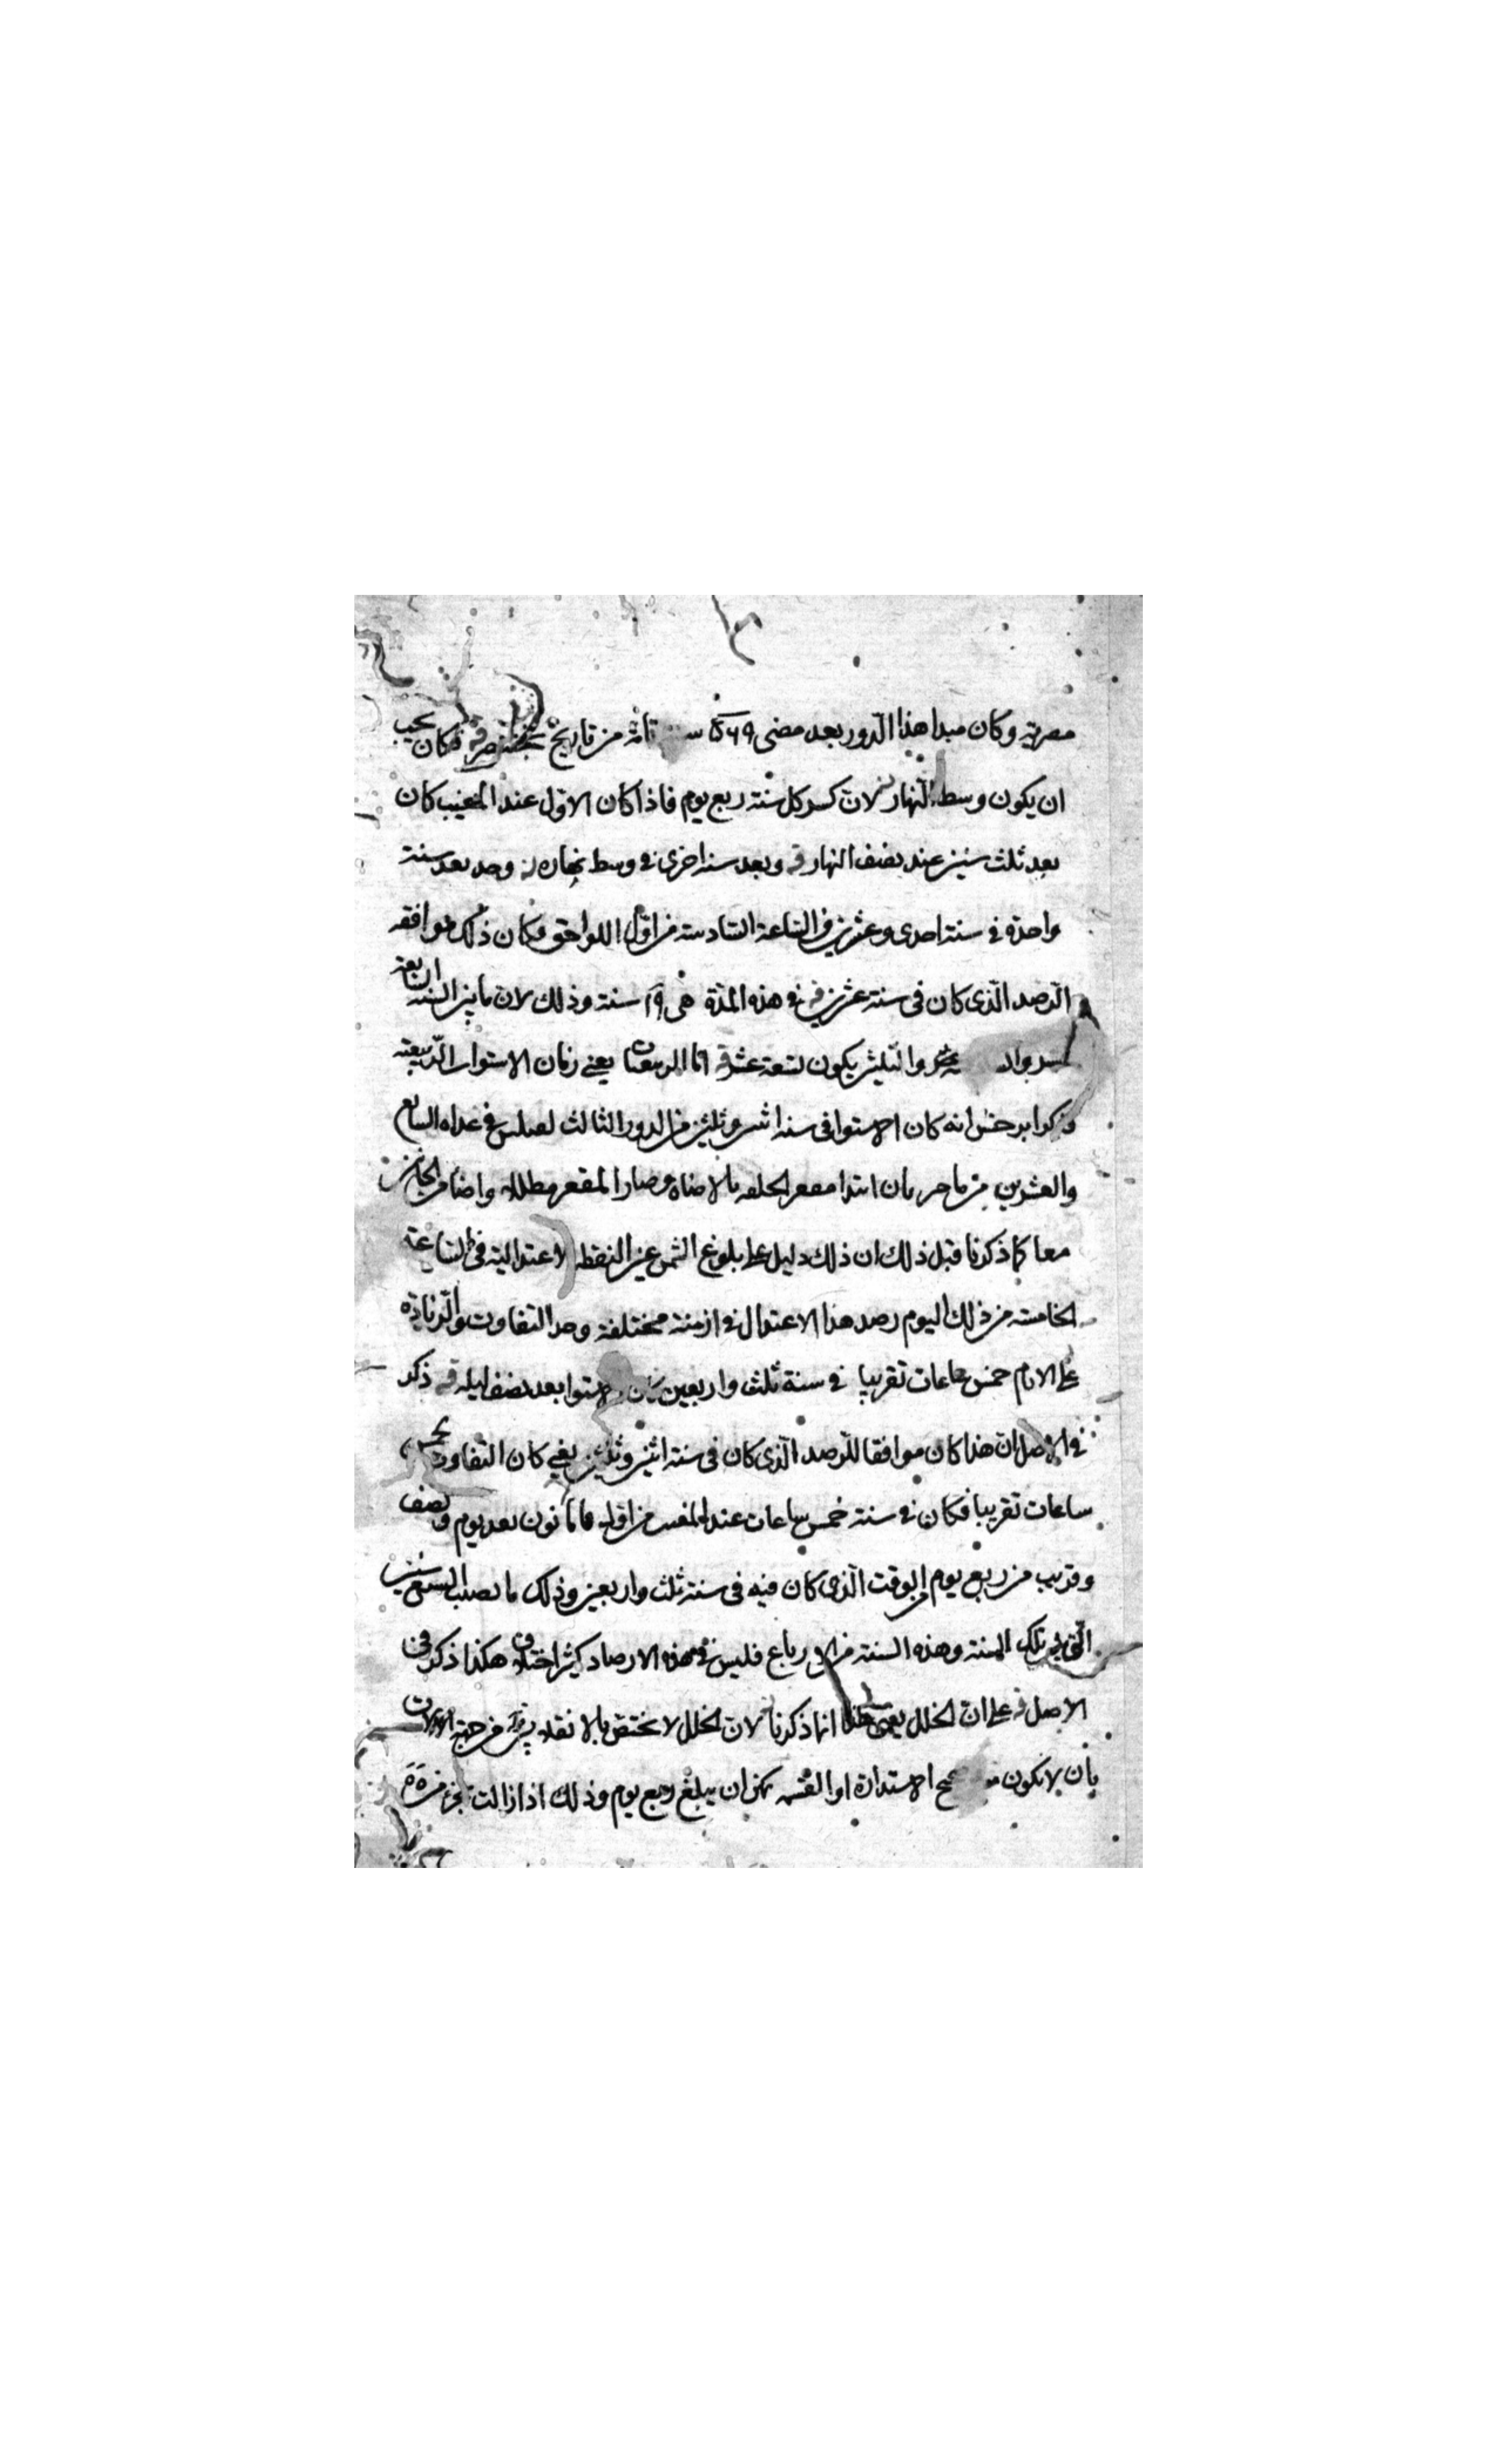 مصرية وكان مبدا هذا الدور بعد مضى ٥٦٩ سنة تامة من تاريخ بختنصر قه فكان يجب
ان يكون وسط النهار لان كسر كل سنة ربع يوم فاذا كان الاول عند المغيب كان
بعد ثلث سنين عند نصف النهار قه وبعد سنة اخرى في وسط نهاره وجد بعد سنة
واحدة في سنة احدى وعشرين في الساعة السادسة من اول اللواحق وكان ذلك موافقه
الرصد الذى كان فى سنة عشرين قه في هذه المدة هى ١٩ سنة وذلك لان ما بين السنة الرابعة
والثلثين يكون تسعة عشر قه اما الربيعيات يعنى زمان الاستواء الربيعية
وذكر ابرخس انه كان الاستوا فى سنة اثنين وثلثين من الدور الثالث في غداه السابع
والعشرين من ماحر بان ابتدا مقعر الحلقه بالاضاه وصار المقعر مظللا واضا من الجانبين
معا كما ذكرنا قبل ذلك ان ذلك دليل على بلوغ الشمس عين النقطه الاعتدالية فى الساعة
الخامسة من ذلك اليوم رصد هذا الاعتدال في ازمنة مختلفة وجد التفاوت والزيادة
على الايام خمس ساعات تقريبا في سنة ثلث واربعين كان الاستوا بعد نصف ليله قه ذكر
في الاصل ان هذا كان موافقا للرصد الذى كان فى سنة اثنين وثلثين يعنى كان التفاوت بخمس
ساعات تقريبا فكان في سنة خمس ساعات عند من اول فامانون بعد يوم ونصف
وقريب من ربع يوم الى الوقت الذى كان فيه فى سنة ثلث واربعين وذلك ما نصيب السبع سنين
التى بين تلك السنة وهذه السنة من الارباع فليس في هذه الارصاد كثير اختلاف هكذا ذكر فى
الاصل قه على ان الخلل يعنى هذا انما ذكرنا لان الخلل لا يختص بالانقلابين من جهة الالات
بان لا يكون صحيح الاستدارة او القسمه يمكن ان يبلغ ربع يوم وذلك اذا زالت